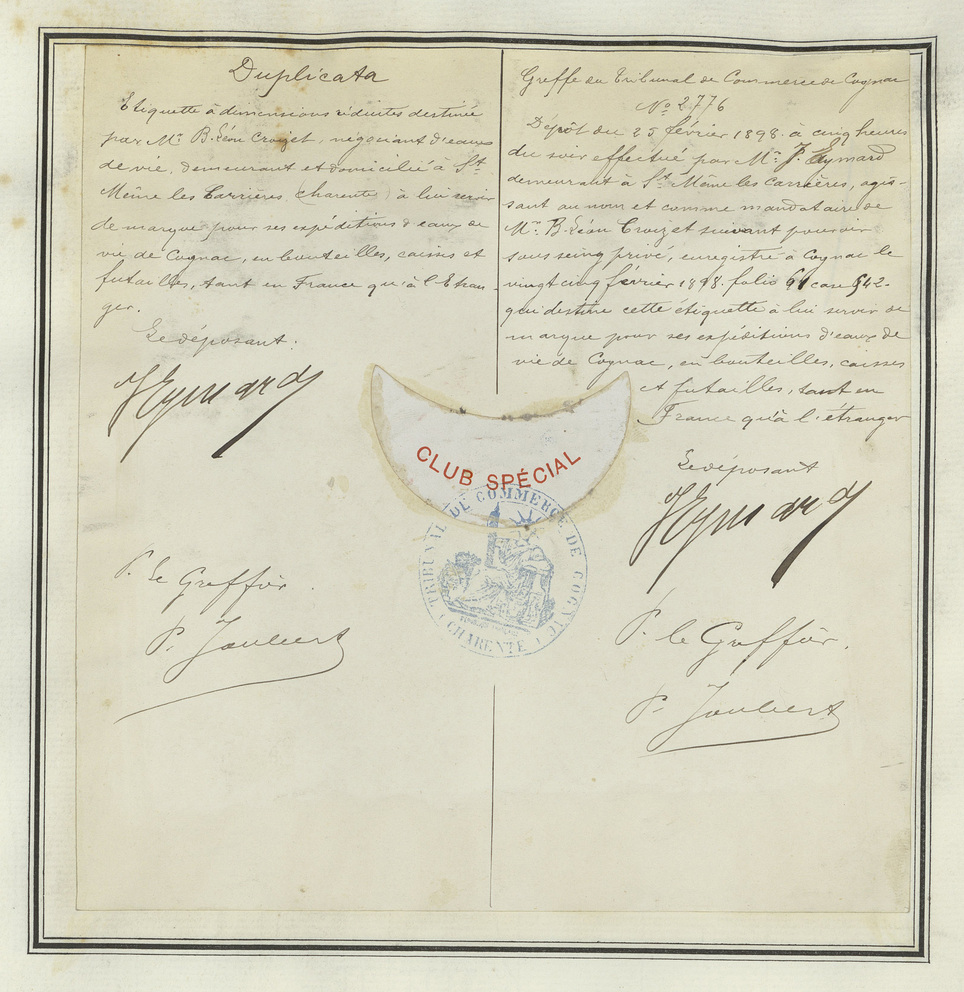 Duplicata
Etiquette à dimensions réduites destinée
par Mr. B. Léon Croizet, négociant d'eaux
de vie, demeurant et domicilié à St.
Même les Carrières (Charente) à lui servir
de marque pour ses expéditions d'eaux de
vie de Cognac, en bouteilles, caisses et
futailles, tant en France qu'à l'Etran-
ger.
Le déposant:
J Eymard
P. le Greffier.
P. Joubert
Greffe du Tribunal de Commerce de Cognac
No 2776
Dépôt du 25 février 1898 à cinq heures
du soir effectué par Mr. J. Eymard
demeurant à St. Même les Carrières, agis-
sant au nom et comme mandataire de
Mr. B. Léon Croizet suivant pouvoir
sous seing privé, enregistré à Cognac le
vingt cinq février 1898. folio case 642-
qui destine cette étiquette à lui servir de
marque pour ses expéditions d'eaux de
vie de Cognac, en bouteilles, caisses
et futailles, tant en
France qu'à l'étranger
Le déposant
J Eymard
P. le Greffier.
P. Joubert
CLUB SPÉCIAL
TRIBUNAL DE COMMERCE DE COGNAC
(CHARENTE)